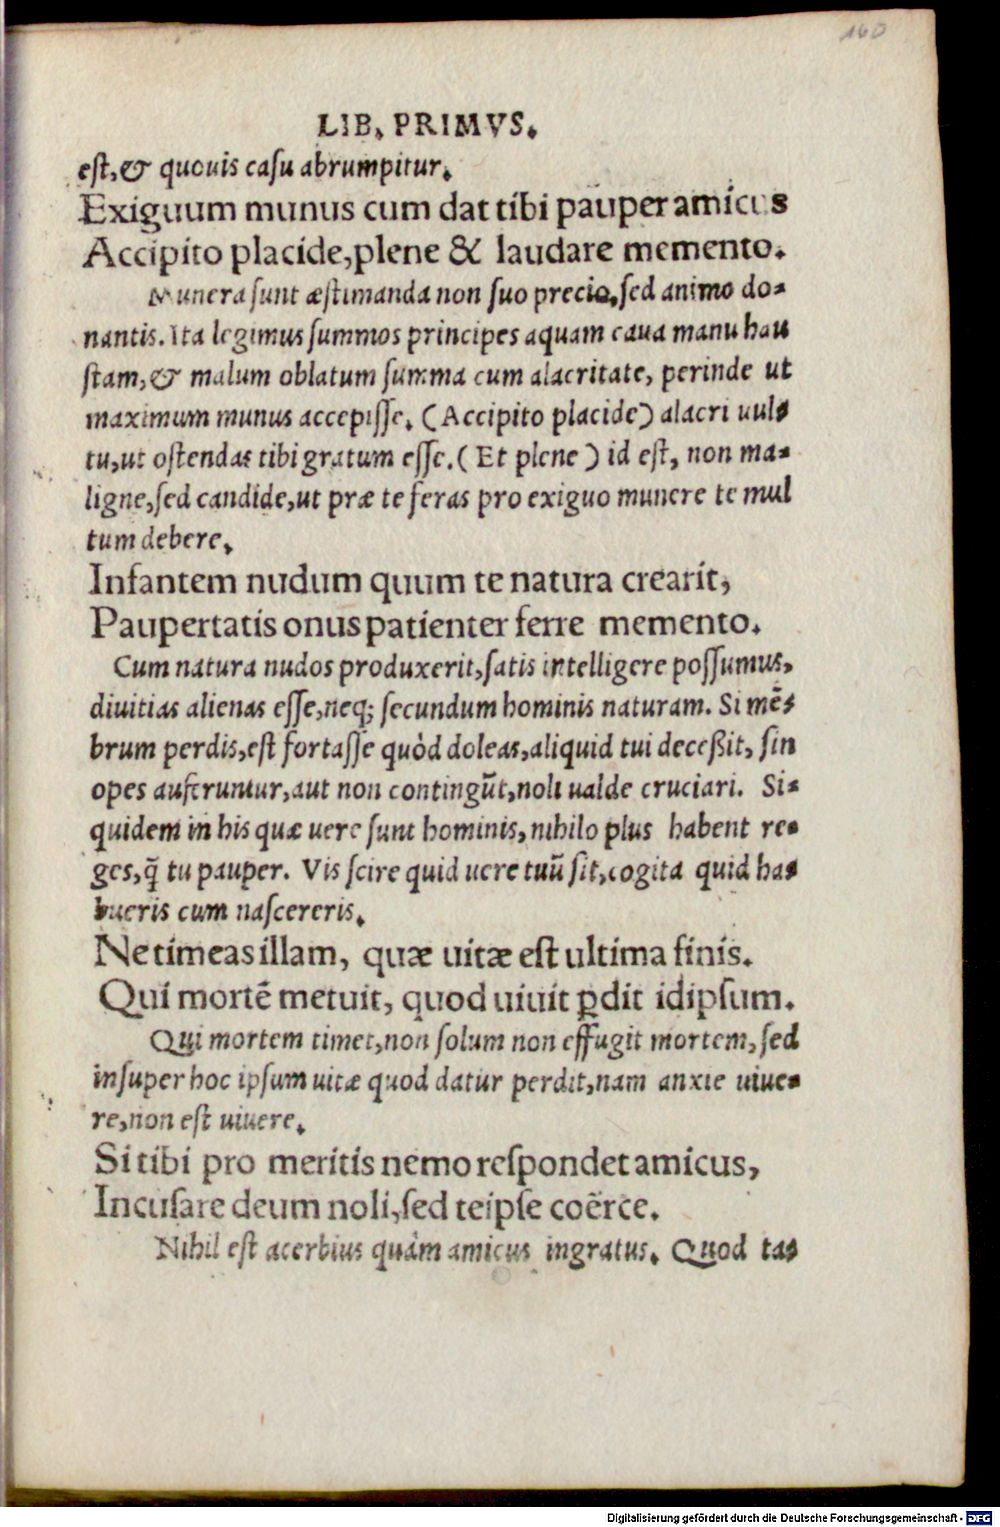 160
LIB. PRIMVS.
est, & quouis casu abrumpitur.
Exiguum munus cum dat tibi pauper amicus
Accipito placide, plene & laudare memento.
Munera sunt æstimanda non suo precio, sed animo do-
nantis. Ita legimus summos principes aquam caua manu hau
stam, & malum oblatum summa cum alacritate, perinde ut
maximum munus accepisse. (Accipito placide) alacri uul-
tu, ut ostendas tibi gratum esse. (Et plene) id est, non ma-
ligne, sed candide, ut præ te feras pro exiguo munere te mul
tum debere.
Infantem nudum quum te natura crearit,
Paupertatis onus patienter ferre memento.
Cum natura nudos produxerit, satis intelligere possumus,
diuitias alienas esse, neq; secundum hominis naturam. Si mē-
brum perdis, est fortasse quòd doleas, aliquid tui deceßit, sin
opes auferuntur, aut non contingūt, noli ualde cruciari. Si-
quidem in his quæ uere sunt hominis, nihilo plus habent re-
ges, q̃ tu pauper. Vis scire quid uere tuū sit, cogita quid ha-
bueris cum nascereris.
Ne timeas illam, quæ uitæ est ultima finis.
Qui mortē metuit, quod uiuit ꝑdit idipsum.
Qui mortem timet, non solum non effugit mortem, sed
insuper hoc ipsum uitæ quod datur perdit, nam anxie uiue-
re, non est uiuere.
Si tibi pro meritis nemo respondet amicus,
Incusare deum noli, sed teipse coërce.
Nihil est acerbius quàm amicus ingratus. Quod ta-
Digitalisierung gefördert durch die Deutsche Forschungsgemeinschaft - DFG